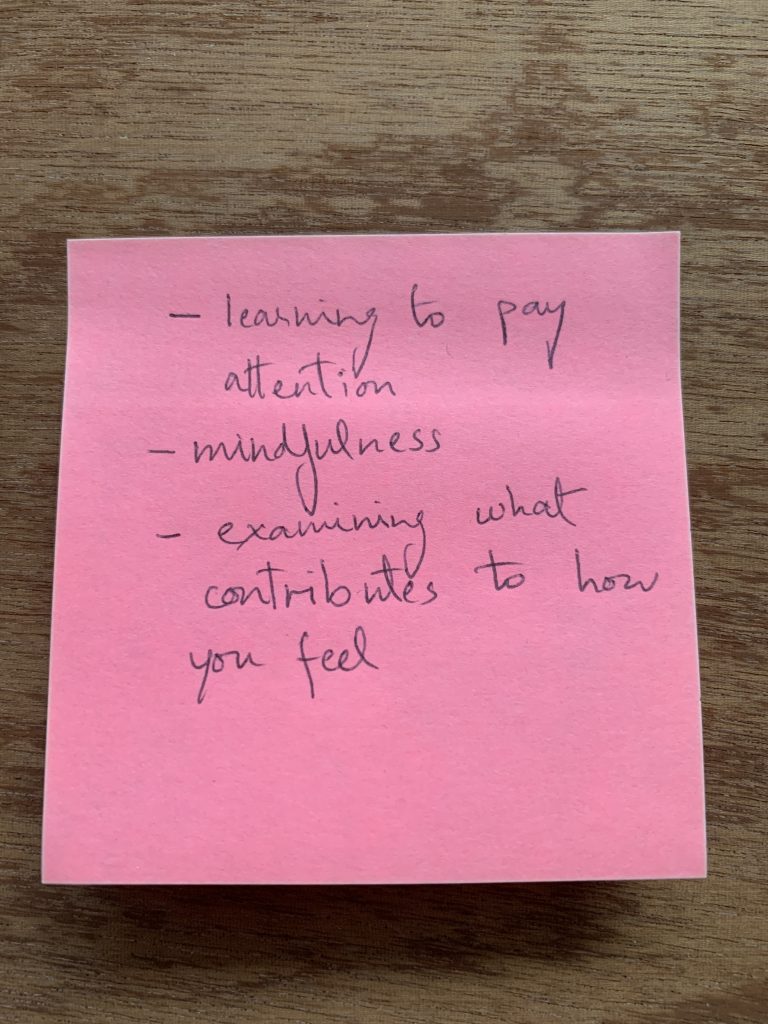 - learning to pay
attention
- mindfulness
- examining what
contributes to how
you feel